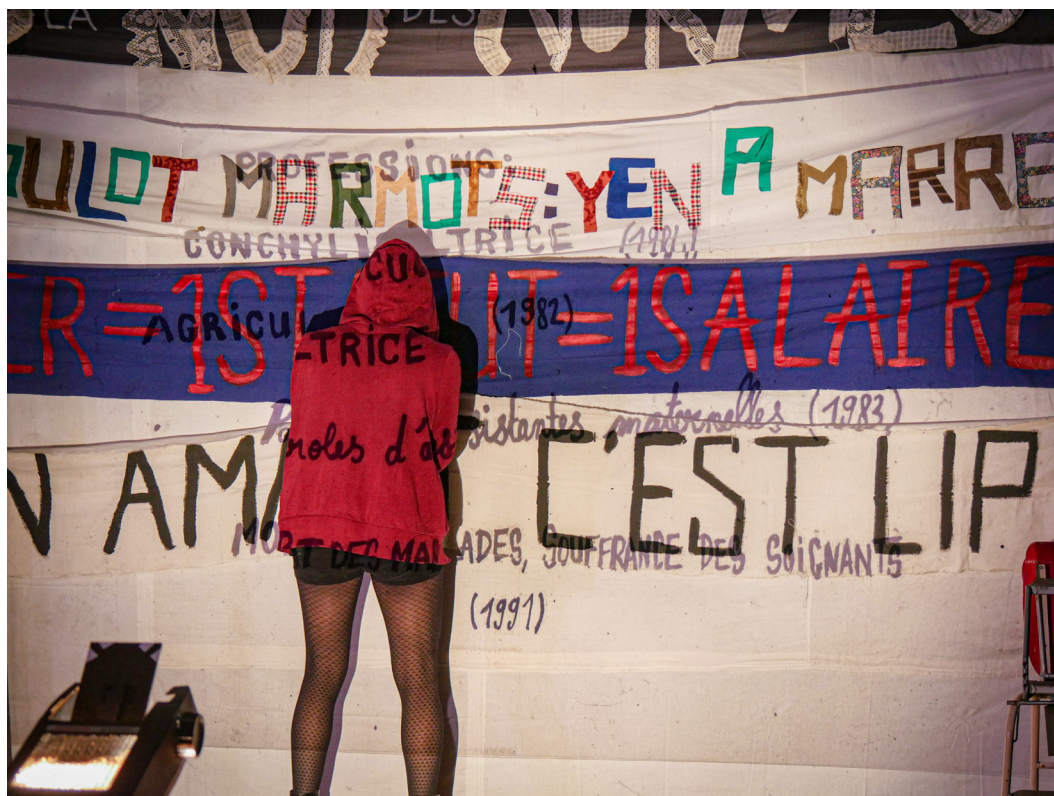 LA DES
NORMES
BOULOT MARMOTS: YEN A MARRE
PROFESSIONS:
CONCHYLICULTRICE (1984)
ER = 1STATUT = 1SALAIRE
AGRICULTRICE (1982)
Paroles d'assistantes maternelles (1983)
N AMA C'EST LIP
MORT DES MALADES, SOUFFRANCE DES SOIGNANTS
(1991)